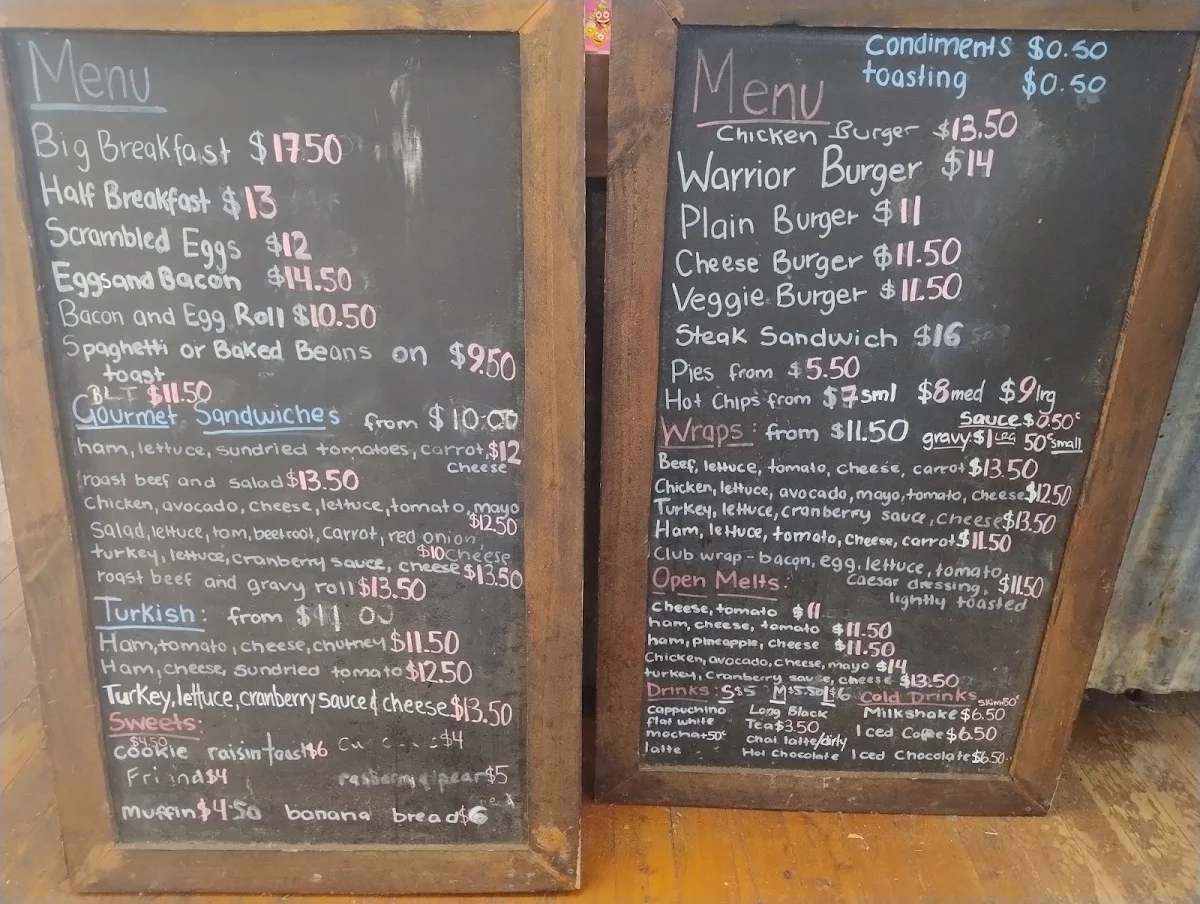 Menu
Big Breakfast $17.50
Half Breakfast $13
Scrambled Eggs $12
Eggs and Bacon $14.50
Bacon and Egg Roll $10.50
Spaghetti or Baked Beans on $9.50
toast
BLT $11.50
Gourmet Sandwiches from $10.00
ham, lettuce, sundried tomatoes, carrot, $12
cheese
roast beef and salad $13.50
Chicken, avocado, cheese, lettuce, tomato, mayo
$12.50
Salad, lettuce, tom, beetroot, carrot, red onion,
$10 cheese
turkey, lettuce, cranberry sauce, cheese $13.50
roast beef and gravy roll $13.50
Turkish: from $11 00
Ham, tomato, cheese, chutney $11.50
Ham, cheese, sundried tomato $12.50
Turkey, lettuce, cranberry sauce & cheese $13.50
Sweets:
$4.50
cookie raisin toast $6 $4
$4 rasberry & pear $5
muffin $4.50 banana bread $6
Condiments $0.50
toasting $0.50
Menu
Chicken Burger $13.50
Warrior Burger $14
Plain Burger $11
Cheese Burger $11.50
Veggie Burger $11.50
Steak Sandwich $16
Pies from $5.50
Hot Chips from $7 sml $8 med $9 lrg
Sauce $0.50c
Wraps: from $11.50 gravy: $1 LRG 50c small
Beef, lettuce, tomato, cheese, carrot $13.50
Chicken, lettuce, avocado, mayo, tomato, cheese $12.50
Turkey, lettuce, cranberry sauce, cheese $13.50
Ham, lettuce, tomato, cheese, carrot $11.50
Club wrap - bacon, egg, lettuce, tomato,
caesar dressing, $11.50
lightly toasted
Open Melts:
cheese, tomato $11
ham, cheese, tomato $11.50
ham, pineapple, cheese $11.50
Chicken, avocado, cheese, mayo $14
turkey, cranberry sauce, cheese $13.50
Drinks: S $5 M $5.50 L $6 Cold Drinks skim 50c
cappuchino Long Black Milkshake $6.50
flat white Tea $3.50 Iced Coffee $6.50
mocha +50c Chai latte/dirty
latte Hot Chocolate Iced Chocolate $6.50